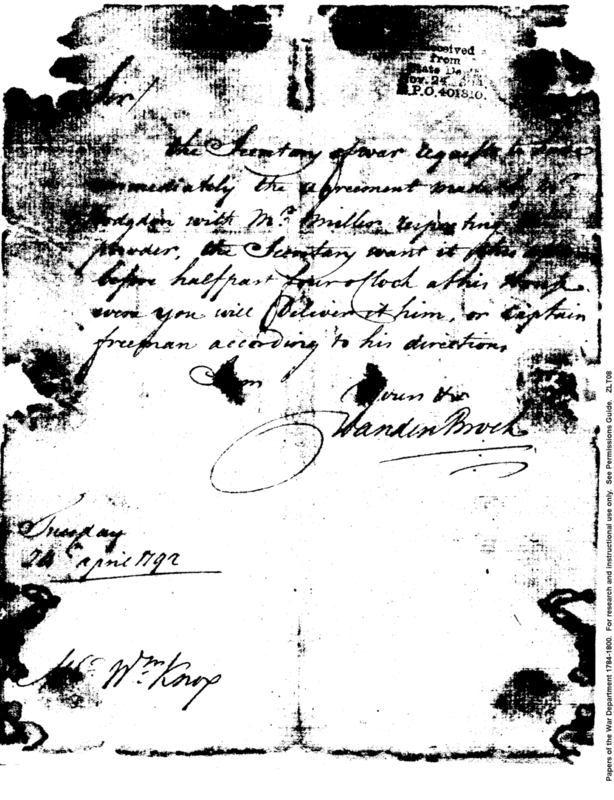 Sir/
Received
from
State De
Nov. 24
P.O. 401310.
the Secretary of war requests to have
immediately the agreement made by Mr.
Hodgdon with Mr. Miller respecting the
powder, the Secretary want it
before half past four oClock at his house
were you will Deliver it him, or Captain
freeman according to his directions
I am
Yours &c
VandenBroek
Tuesday
24 april 1792
Mr. Wm. Knox
Papers of the War Department 1784-1800. For research and instructional use only. See Permissions Guide. ZLT08